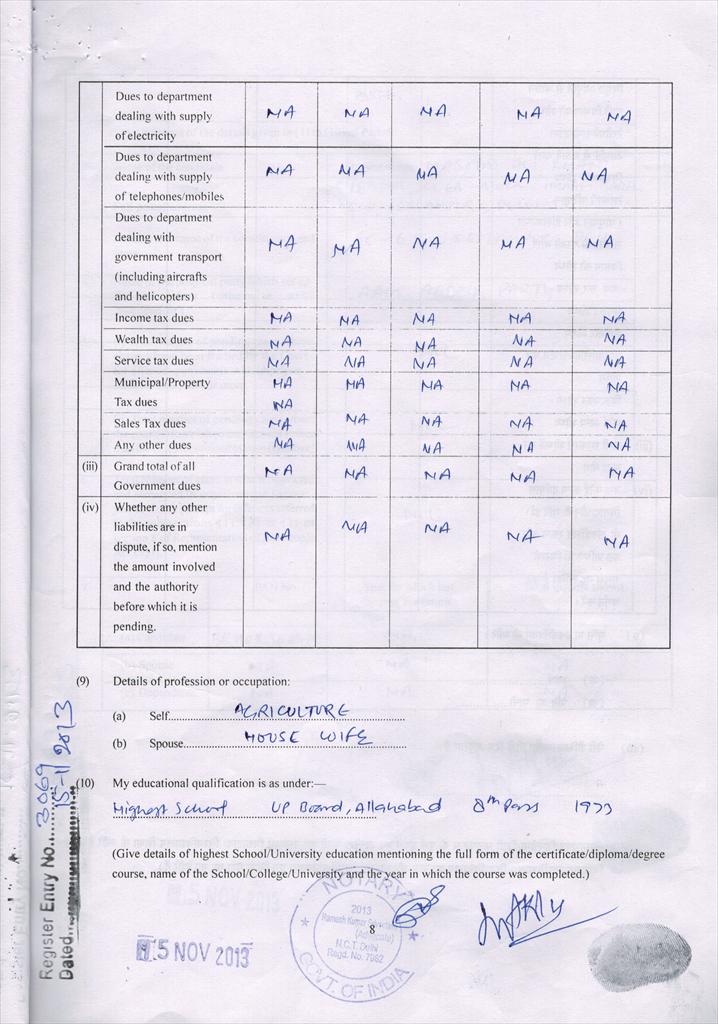 Dues to department
dealing with supply
of electricity
NA NA NA NA NA
Dues to department
dealing with supply
of telephones/mobiles
NA NA NA NA NA
Dues to department
dealing with
government transport
(including aircrafts
and helicopters)
NA NA NA NA NA
Income tax dues NA NA NA NA NA
Wealth tax dues NA NA NA NA NA
Service tax dues NA NA NA NA NA
Municipal/Property NA NA NA NA NA
Tax dues NA
Sales Tax dues NA NA NA NA NA
Any other dues NA NA NA NA NA
(iii) Grand total of all
Government dues
NA NA NA NA NA
(iv) Whether any other
liabilities are in
dispute, if so, mention
the amount involved
and the authority
before which it is
pending.
NA NA NA NA NA
(9) Details of profession or occupation:
(a) Self AGRICULTURE
(b) Spouse HOUSE WIFE
(10) My educational qualification is as under:—
Highest School UP Board, Allahabad 8th Pass 1973
(Give details of highest School/University education mentioning the full form of the certificate/diploma/degree
course, name of the School/College/University and the year in which the course was completed.)
Register Entry No. 3069
Dated 15-11-2013
15 NOV 2013
15 NOV 2013
NOTARY
2013
Ramesh Kumar
(Advocate)
N.C.T. Delhi
Regd. No. 7982
GOVT. OF INDIA
8